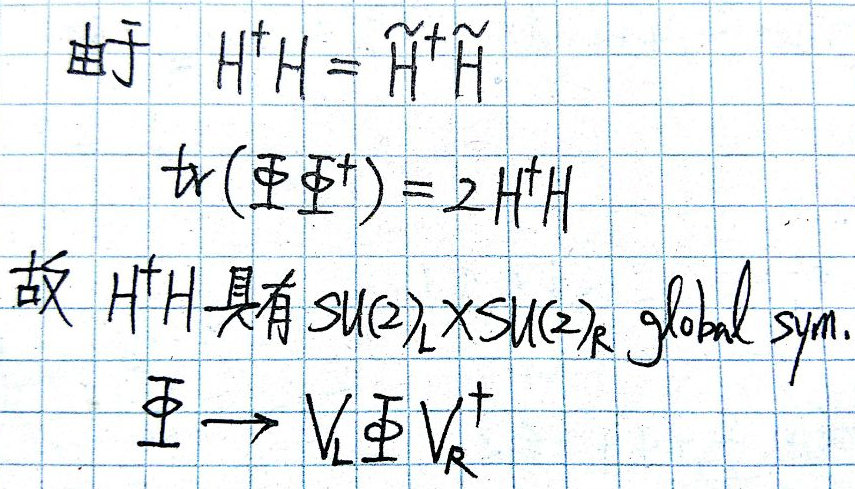 由于 H†H = H̃†H̃
tr(ΦΦ†) = 2H†H
故 H†H 具有 SU(2)_L × SU(2)_R global sym.
Φ → V_L Φ V_R†